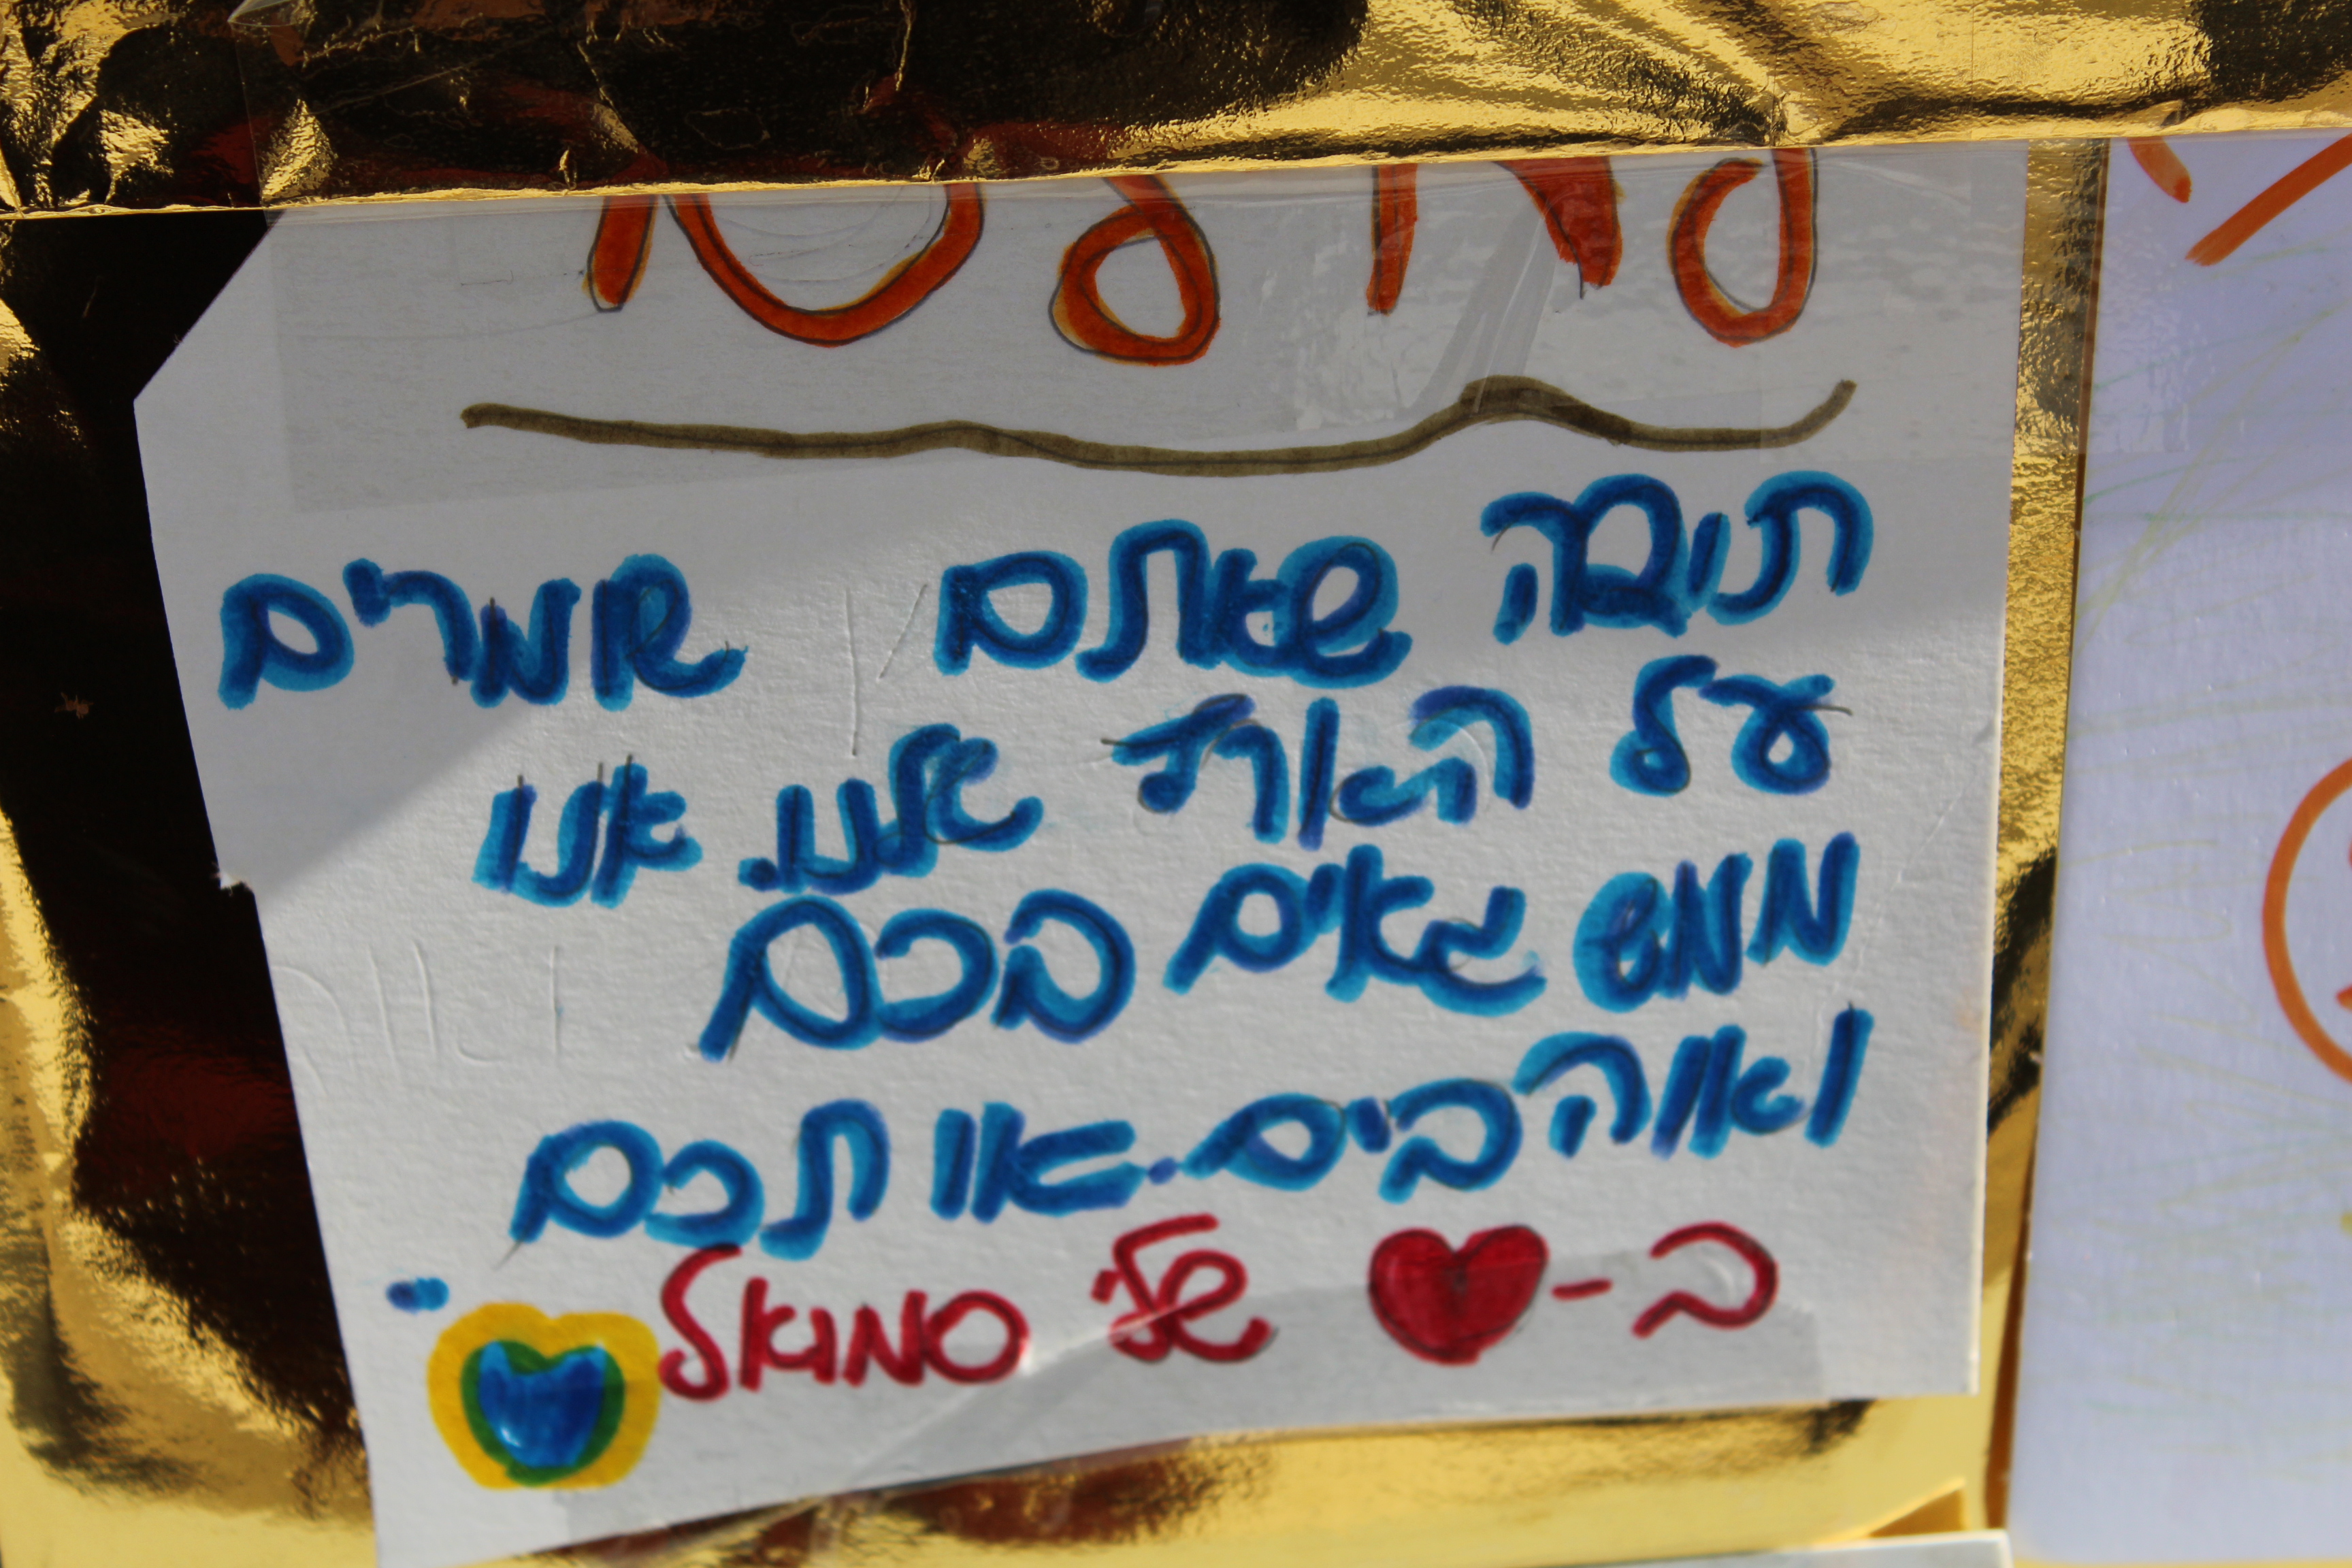 תובה שאתם שומרים
על הארץ שלנו. אנו
ממש גאים בכם
ואוהבים. אותכם
ב- שלי סמואל